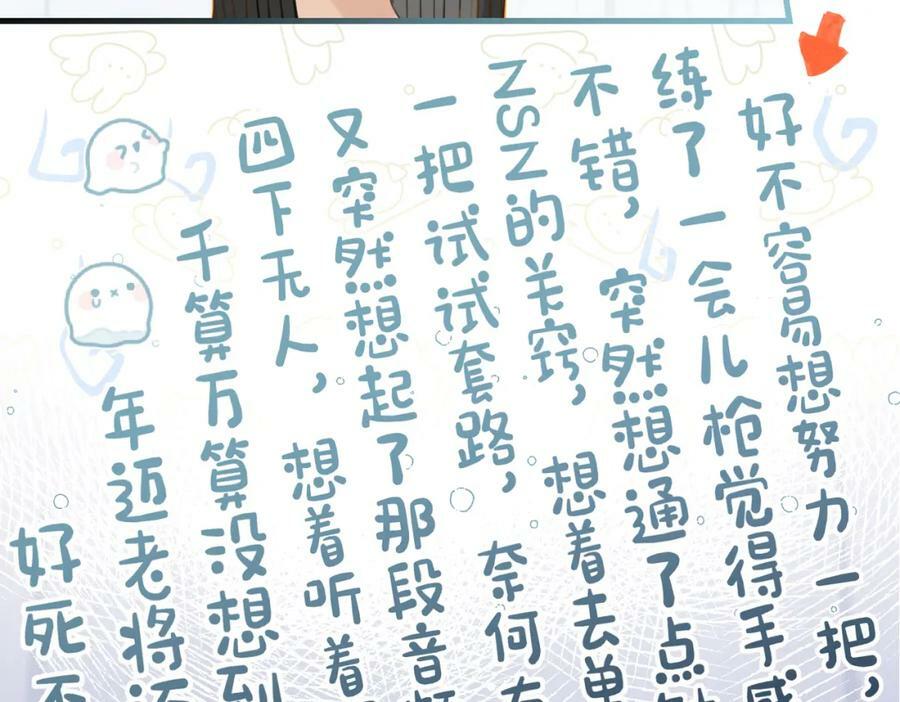 好不容易想努力一把，
练了一会儿枪觉得手感
不错，突然想通了点
NSN的关窍，想着去单
一把试试套路，奈何
又突然想起了那段音
四下无人，想着听着
千算万算没想到
年迈老将
好死不